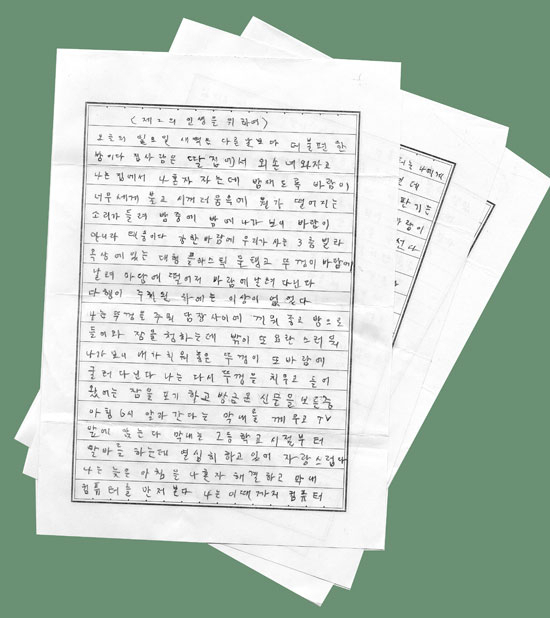 (제2의 인생을 위하여)
오늘의 일요일 새벽은 다른날보다 더 불편한
밤이다 집사람은 딸집에서 외손녀와자고
나는 집에서 나혼자 자는데 밤새도록 바람이
너무세게 불고 시끄러움속에 뭔가 떨어지는
소리가 들려 밤중에 밖에 나가 보니 바람이
아니라 태풍이다 강한바람에 우리가 사는 3층빌라
옥상에 있는 대형 플라스틱 물탱크 뚜껑이 바람에
날려 마당에 떨어져 바람에 날려 다닌다
다행이 주위에는 이상이 없었다
나는 뚜껑을 주워 담장사이에 끼워 놓고 방으로
들어와 잠을 청하는데 밖이 또 요란스러워
나가 보니 내가 치워놓은 뚜껑이 또 바람에
굴러 다닌다 나는 다시 뚜껑을 치우고 들어
왔어는 잠을 포기 하고 방금온 신문을 보는중
아침 6시 알바간다는 막내를 깨우고 TV
앞에 앉는다 막내는 고등학교 시절부터
알바를 하는데 열심히 하고 있어 자랑스럽다
나는 늦은 아침을 나혼자 해결하고 막내
컴퓨터를 만저본다 나는 이때까지 컴퓨터
는 나에게
판기는
바람이